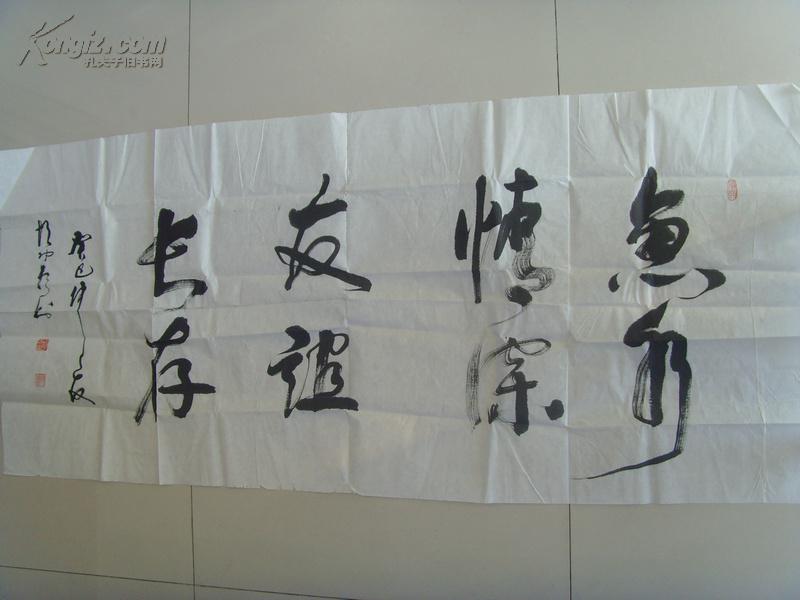 鱼水
情深
友谊
长存
癸巳
Kongfz.com
孔夫子旧书网